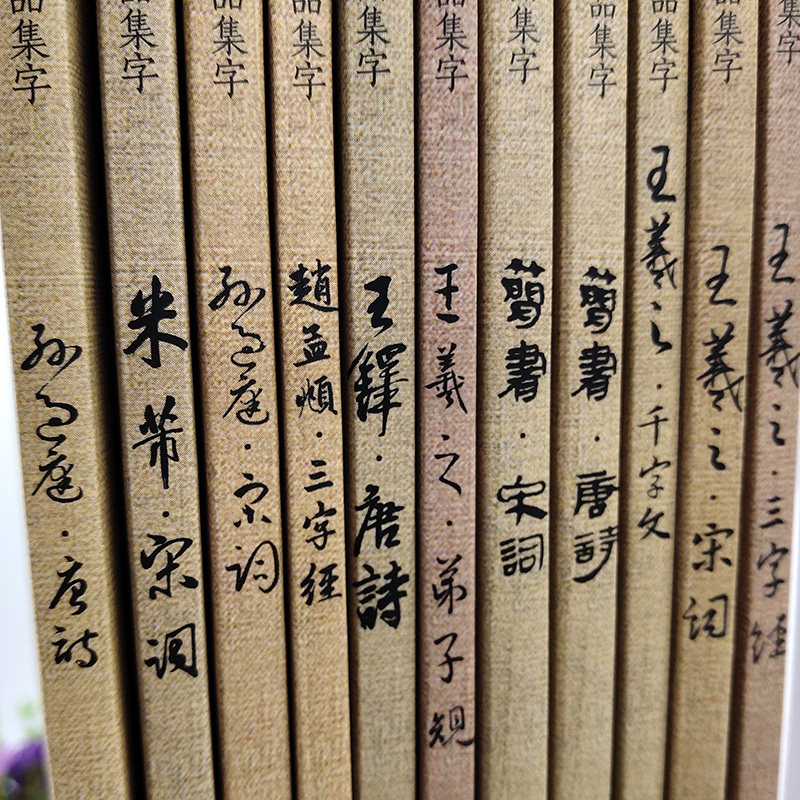 品集字
孙过庭·唐诗
品集字
米芾·宋词
品集字
孙过庭·宋词
品集字
趙孟頫·三字經
品集字
王鐸·唐詩
品集字
王羲之·弟子規
品集字
簡書·宋詞
品集字
簡書·唐詩
品集字
王羲之·千字文
品集字
王羲之·宋词
品集字
王羲之·三字經